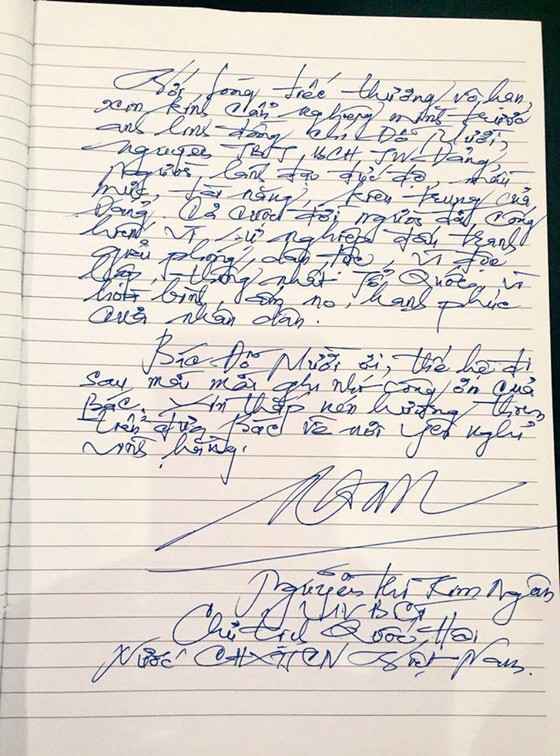 Với lòng tiếc thương vô hạn,
xin kính cẩn nghiêng mình trước
anh linh đồng chí Đỗ Mười,
nguyên TBT, BCH TW Đảng,
Người lãnh đạo đức độ, mẫu
mực, tài năng, kiên trung của
Đảng. Cả cuộc đời người đã cống
hiến vì sự nghiệp đấu tranh
giải phóng dân tộc, vì độc
lập, thống nhất Tổ Quốc, vì
hòa bình, ấm no, hạnh phúc
của nhân dân.
Bác Đỗ Mười ơi, thế hệ đi
sau mãi mãi ghi nhớ công ơn của
Bác. Xin thắp nén hương thơm
tiễn đưa Bác về nơi yên nghỉ
vĩnh hằng.
Ngân
Nguyễn Thị Kim Ngân
UVBCT
Chủ tịch Quốc Hội
Nước CHXHCN Việt Nam.